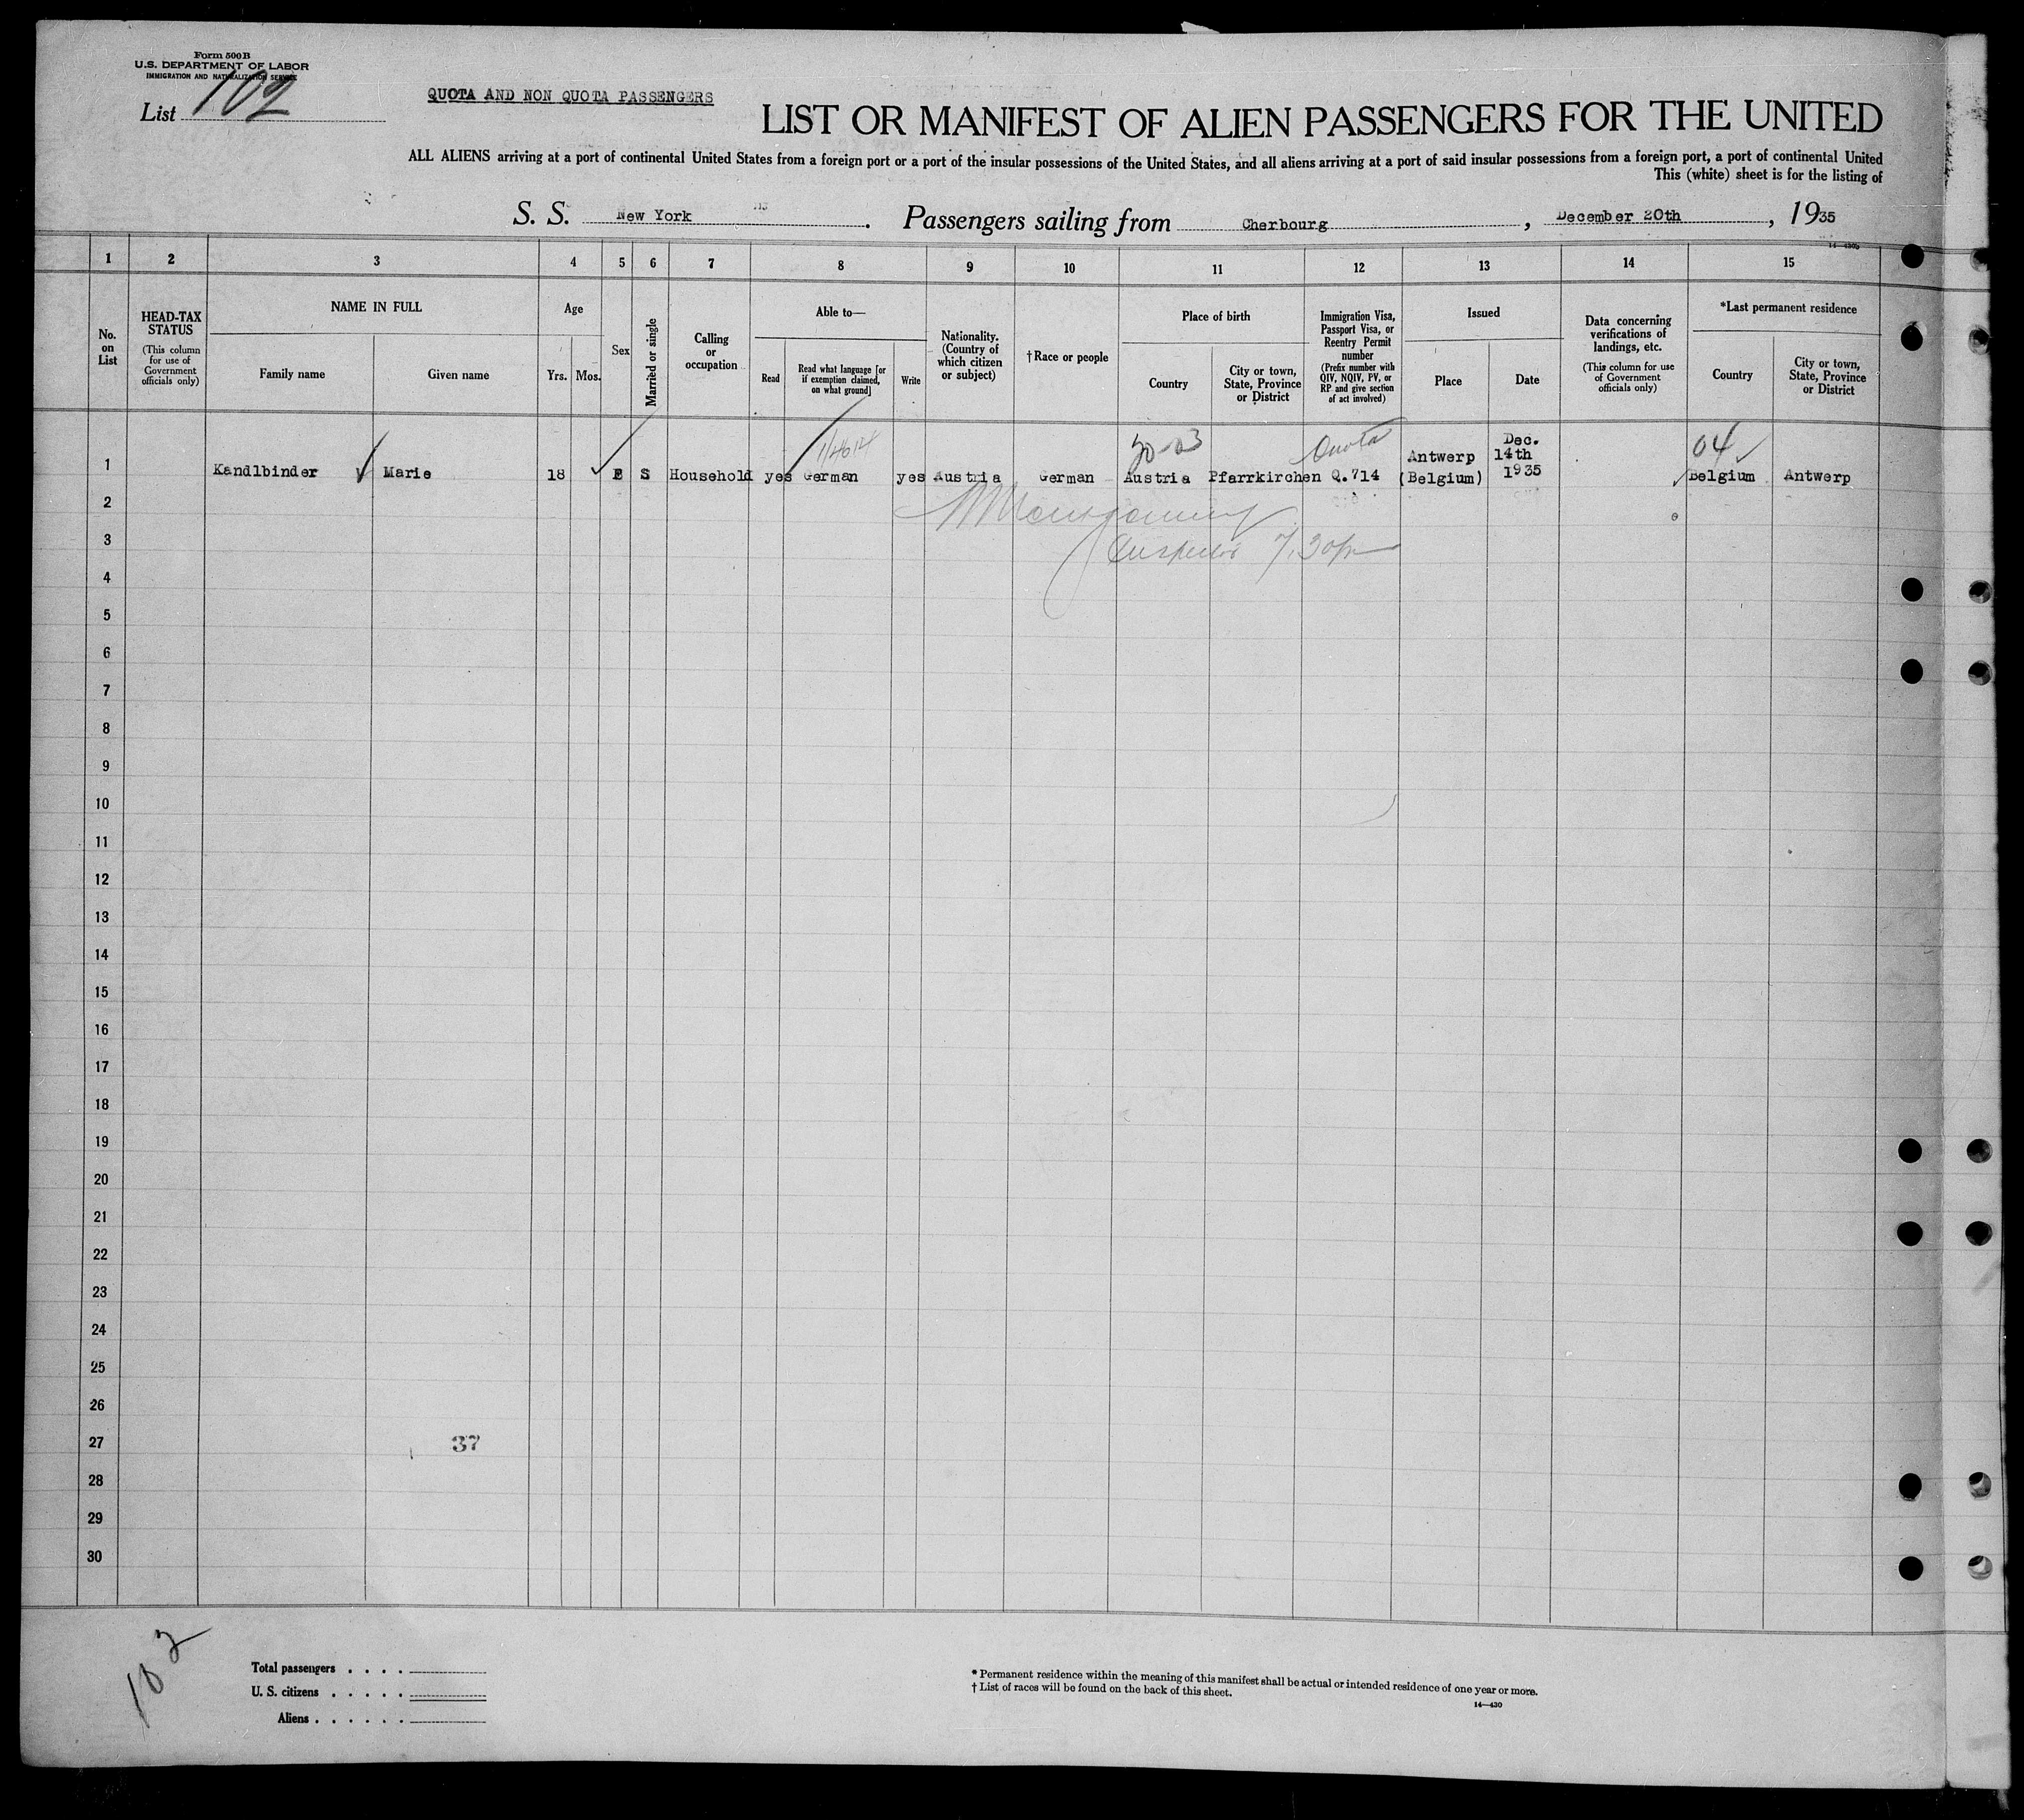 Form 500 B
U.S. DEPARTMENT OF LABOR
IMMIGRATION AND NATURALIZATION SERVICE
List 102
QUOTA AND NON QUOTA PASSENGERS
LIST OR MANIFEST OF ALIEN PASSENGERS FOR THE UNITED
ALL ALIENS arriving at a port of continental United States from a foreign port or a port of the insular possessions of the United States, and all aliens arriving at a port of said insular possessions from a foreign port, a port of continental United
This (white) sheet is for the listing of
S. S. New York. Passengers sailing from Cherbourg, December 20th, 1935
14—430b
1 2 3 4 5 6 7 8 9 10 11 12 13 14 15
No. on List
HEAD-TAX STATUS
(This column for use of Government officials only)
NAME IN FULL
Family name
Given name
Age
Yrs.
Mos.
Sex
Married or single
Calling or occupation
Able to—
Read
Read what language [or if exemption claimed, on what ground]
Write
Nationality. (Country of which citizen or subject)
†Race or people
Place of birth
Country
City or town, State, Province or District
Immigration Visa, Passport Visa, or Reentry Permit number
(Prefix number with QIV, NQIV, PV, or RP and give section of act involved)
Issued
Place
Date
Data concerning verifications of landings, etc.
(This column for use of Government officials only)
*Last permanent residence
Country
City or town, State, Province or District
Quota
04
Dec.
Antwerp 14th
1 Kandlbinder Marie 18 F S Household yes German yes Austria German Austria Pfarrkirchen Q.714 (Belgium) 1935 Belgium Antwerp
2 Montgomery
3 Inspector 7.30pm
4
5
6
7
8
9
10
11
12
13
14
15
16
17
18
19
20
21
22
23
24
25
26
27 37
28
29
30
102
Total passengers . . . .
U. S. citizens . . . . .
Aliens . . . . . .
* Permanent residence within the meaning of this manifest shall be actual or intended residence of one year or more.
† List of races will be found on the back of this sheet.
14—430